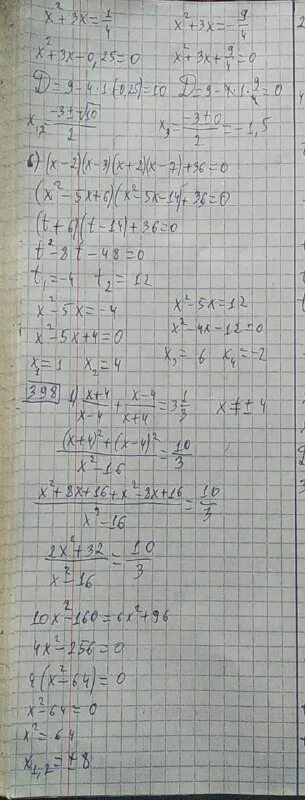 x²+3x=1/4    x²+3x=-9/4
x²+3x-0,25=0    x²+3x+9/4=0
D=9-4·1·(-0,25)=10    D=9-4·1·9/4=0
x₁,₂=(-3±√10)/2    x₃=(-3±0)/2=-1,5
б) (x-2)(x-3)(x+2)(x-7)+36=0
(x²-5x+6)(x²-5x-14)+36=0
(t+6)(t-14)+36=0
t²-8t-48=0
t₁=-4    t₂=12
x²-5x=-4    x²-5x=12
x²-5x+4=0    x²-4x-12=0
x₁=1    x₂=4    x₃=6    x₄=-2
398 1) (x+4)/(x-4)+(x-4)/(x+4)=3 1/3    x≠±4
((x+4)²+(x-4)²)/(x²-16)=10/3
(x²+8x+16+x²-8x+16)/(x²-16)=10/3
(2x²+32)/(x²-16)=10/3
10x²-160=6x²+96
4x²-256=0
4(x²-64)=0
x²-64=0
x²=64
x₁,₂=±8